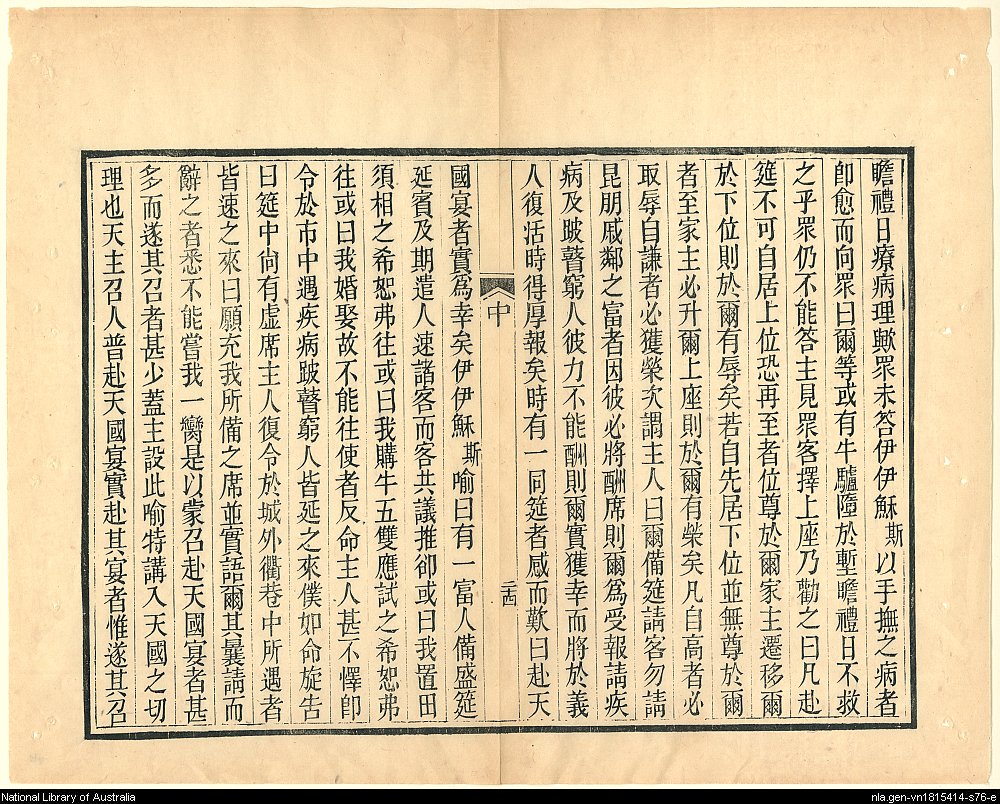 瞻禮日療病理歟眾未答伊伊穌斯以手撫之病者
卽愈而向眾曰爾等或有牛驢墮於塹瞻禮日不救
之乎眾仍不能答主見眾客擇上座乃勸之曰凡赴
筵不可自居上位恐再至者位尊於爾家主遷移爾
於下位則於爾有辱矣若自先居下位並無尊於爾
者至家主必升爾上座則於爾有榮矣凡自高者必
取辱自謙者必獲榮次謂主人曰爾備筵請客勿請
昆朋戚鄰之富者因彼必將酬席則爾爲受報請疾
病及跛瞽窮人彼力不能酬則爾實獲幸而將於義
人復活時得厚報矣時有一同筵者感而歎曰赴天
中
二四
國宴者實爲幸矣伊伊穌斯喻曰有一富人備盛筵
延賓及期遣人速諸客而客共議推卻或曰我置田
須相之希恕弗往或曰我購牛五雙應試之希恕弗
往或曰我婚娶故不能往使者反命主人甚不懌卽
令於市中遇疾病跛瞽窮人皆延之來僕如命旋告
曰筵中尙有虛席主人復令於城外衢巷中所遇者
皆速之來曰願充我所備之席並實語爾其曩請而
辭之者悉不能嘗我一臠是以蒙召赴天國宴者甚
多而遂其召者甚少蓋主設此喻特講入天國之切
理也天主召人普赴天國宴實赴其宴者惟遂其召
National Library of Australia
nla.gen-vn1815414-s76-e